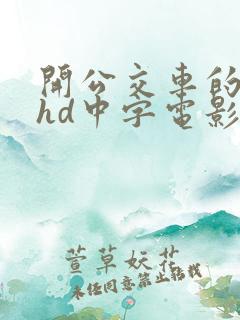 開公交車的
hd中字電影
萱草妖花
未经同意禁止转载